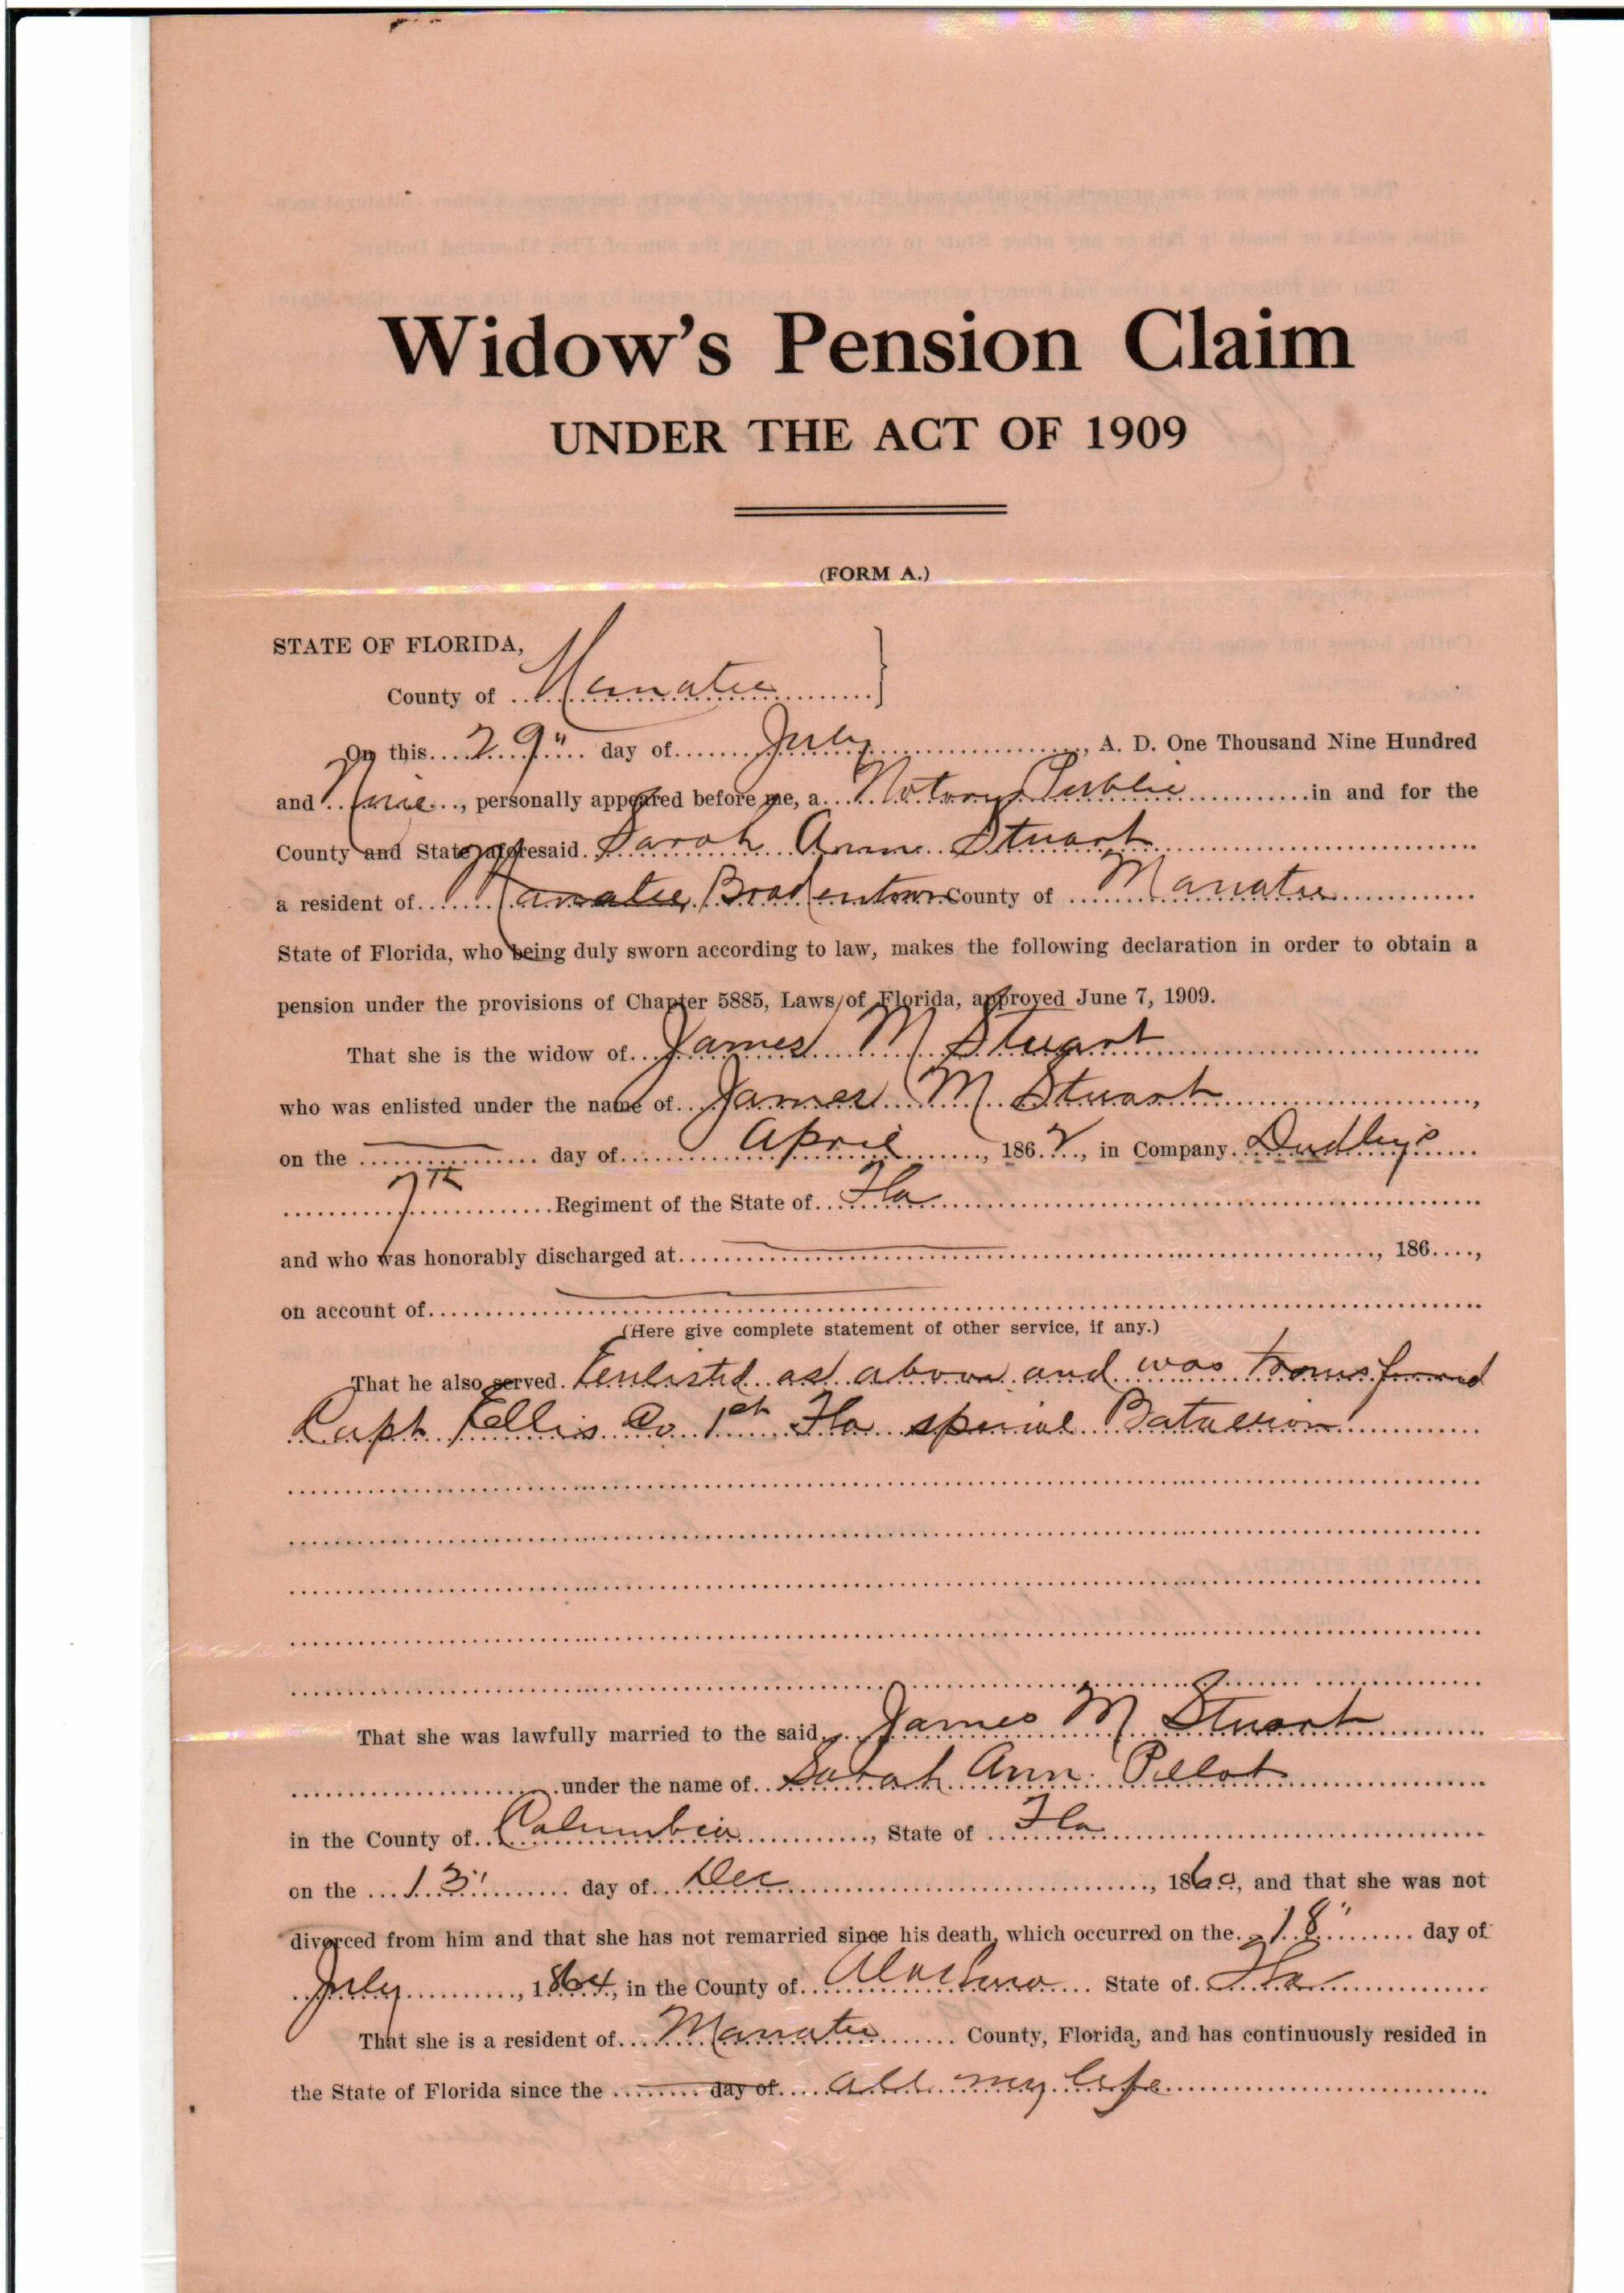 Widow's Pension Claim
UNDER THE ACT OF 1909
(FORM A.)
STATE OF FLORIDA,
County of Manatee
On this 29" day of July, A. D. One Thousand Nine Hundred
and Nine, personally appeared before me, a Notary Public in and for the
County and State aforesaid Sarah Ann Stuart
a resident of Manatee Bradentown County of Manatee
State of Florida, who being duly sworn according to law, makes the following declaration in order to obtain a
pension under the provisions of Chapter 5885, Laws of Florida, approved June 7, 1909.
That she is the widow of James M Stuart
who was enlisted under the name of James M Stuart,
on the day of April, 1862, in Company Dudley's
7th Regiment of the State of Fla
and who was honorably discharged at, 186,
on account of
(Here give complete statement of other service, if any.)
That he also served enlisted as above and was transferred
Capt Ellis Co 1st Fla special Batalion
That she was lawfully married to the said James M Stuart
under the name of Sarah Ann Pellot
in the County of Columbia, State of Fla
on the 13" day of Dec, 1860, and that she was not
divorced from him and that she has not remarried since his death, which occurred on the 18" day of
July, 1864, in the County of Alachua State of Fla
That she is a resident of Manatee County, Florida, and has continuously resided in
the State of Florida since the day of all my life